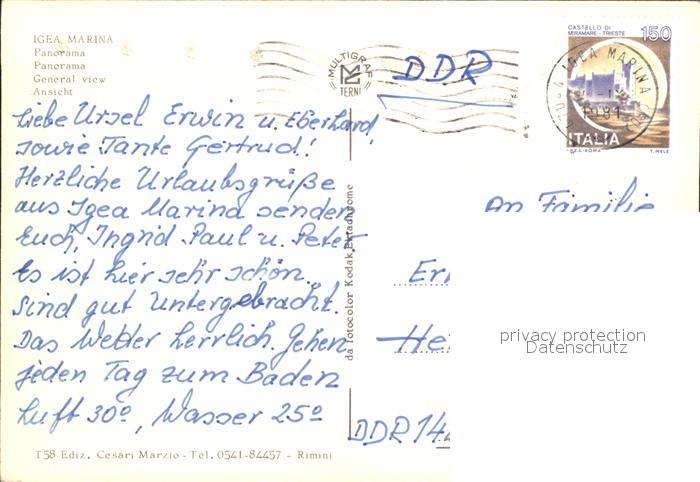 IGEA MARINA
Panorama
Panorama
General view
Ansicht
Liebe Ursel Erwin u. Eberhard,
sowie Tante Gertrud!
Herzliche Urlaubsgrüße
aus Igea Marina senden
Euch, Ingrid Paul u. Peter.
Es ist hier sehr schön.
Sind gut untergebracht.
Das Wetter herrlich. Gehen
jeden Tag zum Baden
Luft 30º, Wasser 25º
T58 Ediz. Cesari Marzio - Tel. 0541-84457 - Rimini
da fotocolor Kodak Ektachrome
MULTIGRAF
TERNI
DDR
CASTELLO DI
MIRAMARE - TRIESTE
150
IGEA MARINA
ITALIA
T. MELE
An Familie
DDR 14
privacy protection
Datenschutz